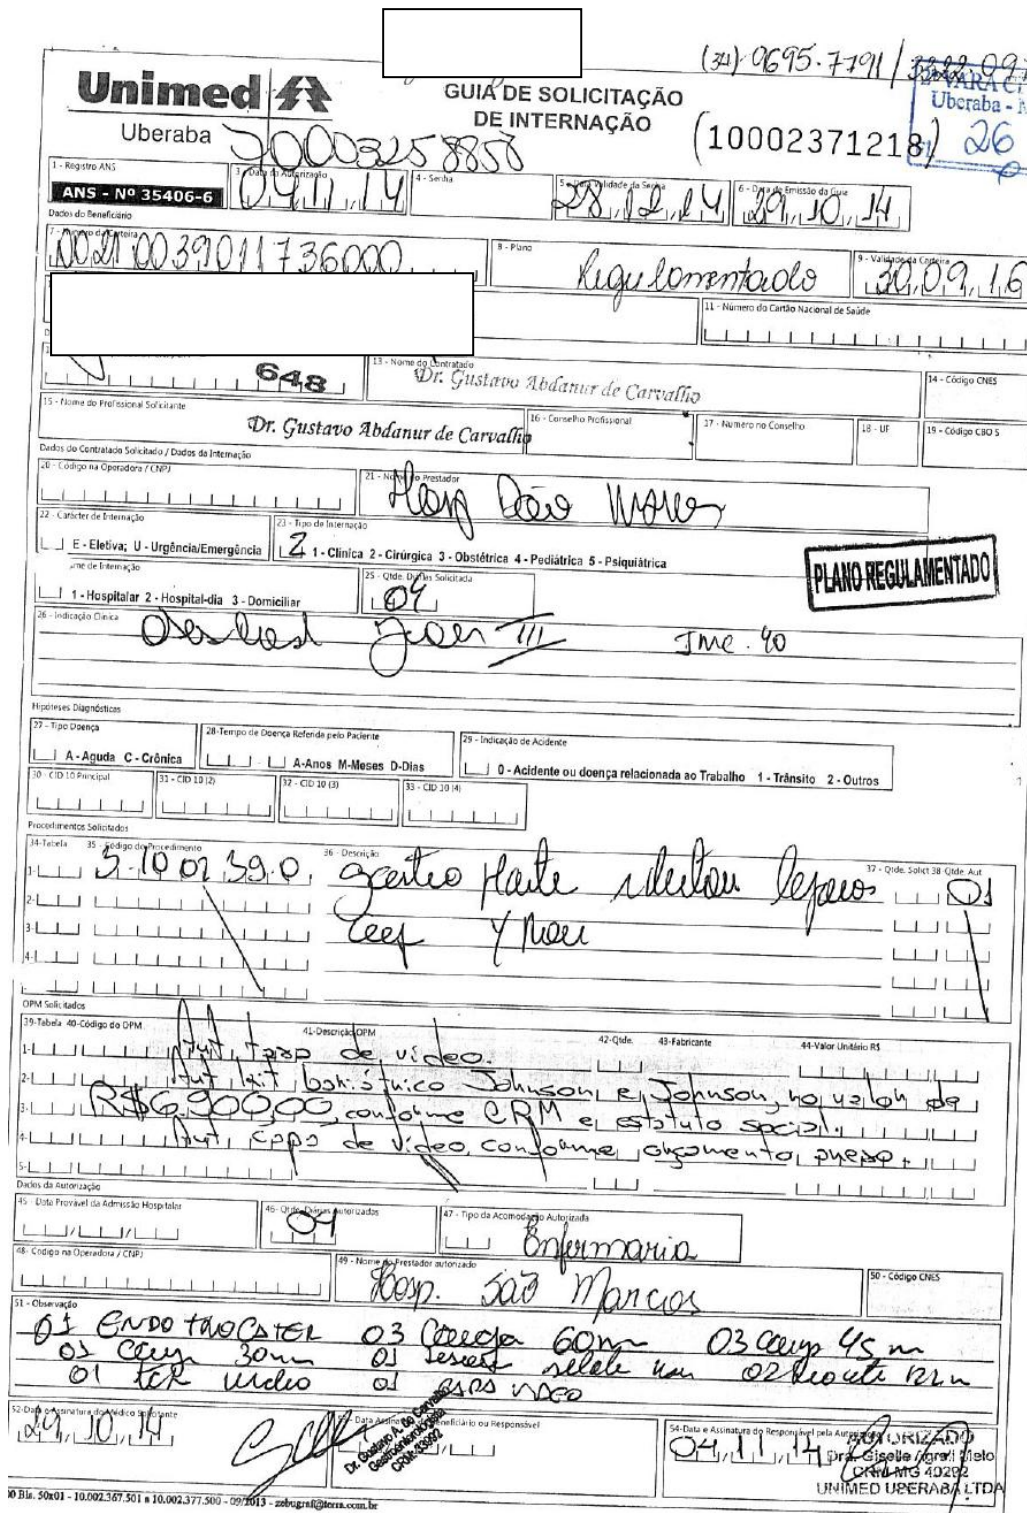 (34) 9695-7791 / 3322-09
Unimed
Uberaba
GUIA DE SOLICITAÇÃO
DE INTERNAÇÃO
VARA CÍ
Uberaba - M
26
(10002371218)
1 - Registro ANS
ANS - Nº 35406-6
3 - Data da Autorização
04 11 14
4 - Senha
5 - Data Validade da Senha
28 12 14
6 - Data de Emissão da Guia
29 10 14
Dados do Beneficiário
7 - Número da Carteira
0021 0039011736000
8 - Plano
Regulamentado
9 - Validade da Carteira
30 09 16
11 - Número do Cartão Nacional de Saúde
648
13 - Nome do Contratado
Dr. Gustavo Abdanur de Carvalho
14 - Código CNES
15 - Nome do Profissional Solicitante
Dr. Gustavo Abdanur de Carvalho
16 - Conselho Profissional
17 - Numero no Conselho
18 - UF
19 - Código CBO S
Dados do Contratado Solicitado / Dados da Internação
20 - Código na Operadora / CNPJ
21 - Nome do Prestador
Hosp São
22 - Caráter de Internação
E - Eletiva; U - Urgência/Emergência
23 - Tipo de Internação
2 1 - Clínica 2 - Cirúrgica 3 - Obstétrica 4 - Pediátrica 5 - Psiquiátrica
PLANO REGULAMENTADO
me de Internação
1 - Hospitalar 2 - Hospital-dia 3 - Domiciliar
25 - Qtde. Diárias Solicitada
04
26 - Indicação Clínica
III IMC. 40
Hipóteses Diagnósticas
27 - Tipo Doença
A - Aguda C - Crônica
28-Tempo de Doença Referida pelo Paciente
A-Anos M-Meses D-Dias
29 - Indicação de Acidente
0 - Acidente ou doença relacionada ao Trabalho 1 - Trânsito 2 - Outros
30 - CID 10 Principal
31 - CID 10 (2)
32 - CID 10 (3)
33 - CID 10 (4)
Procedimentos Solicitados
34-Tabela 35 - Código do Procedimento 36 - Descrição 37 - Qtde. Solict 38-Qtde. Aut
1- 3.10 02 39.0 01
2- Y
3-
4-
OPM Solicitados
39-Tabela 40-Código do OPM 41-Descrição OPM 42-Qtde. 43-Fabricante 44-Valor Unitário R$
1- Aut. de vídeo.
2- Aut. kit Johnson e Johnson, no valor de
3- R$6.900,00, conforme CRM e estatuto social.
4- Aut. capa de vídeo, conforme orçamento
5-
Dados da Autorização
45 - Data Provável da Admissão Hospitalar
46- Qtde. Diárias Autorizadas
04
47 - Tipo da Acomodação Autorizada
Enfermaria
48- Codigo na Operadora / CNPJ
49 - Nome do Prestador autorizado
Hosp. São Marcos
50 - Código CNES
51 - Observação
01 ENDO 03 60 03 45
30 01 02
01 01 CAPA VIDEO
52-Data e Assinatura do Médico Solicitante
29 10 14
Dr. Gustavo A. de Carvalho
Gastroenterologista
53 - Data Assinatura do Beneficiário ou Responsável
54-Data e Assinatura do Responsável pela Autorização
04 11 14
AUTORIZADO
CRM-MG 40292
UNIMED UBERABA LTDA
00 Bls. 50x01 - 10.002.367.501 a 10.002.377.500 - 09/2013 - zebugraf@terra.com.br